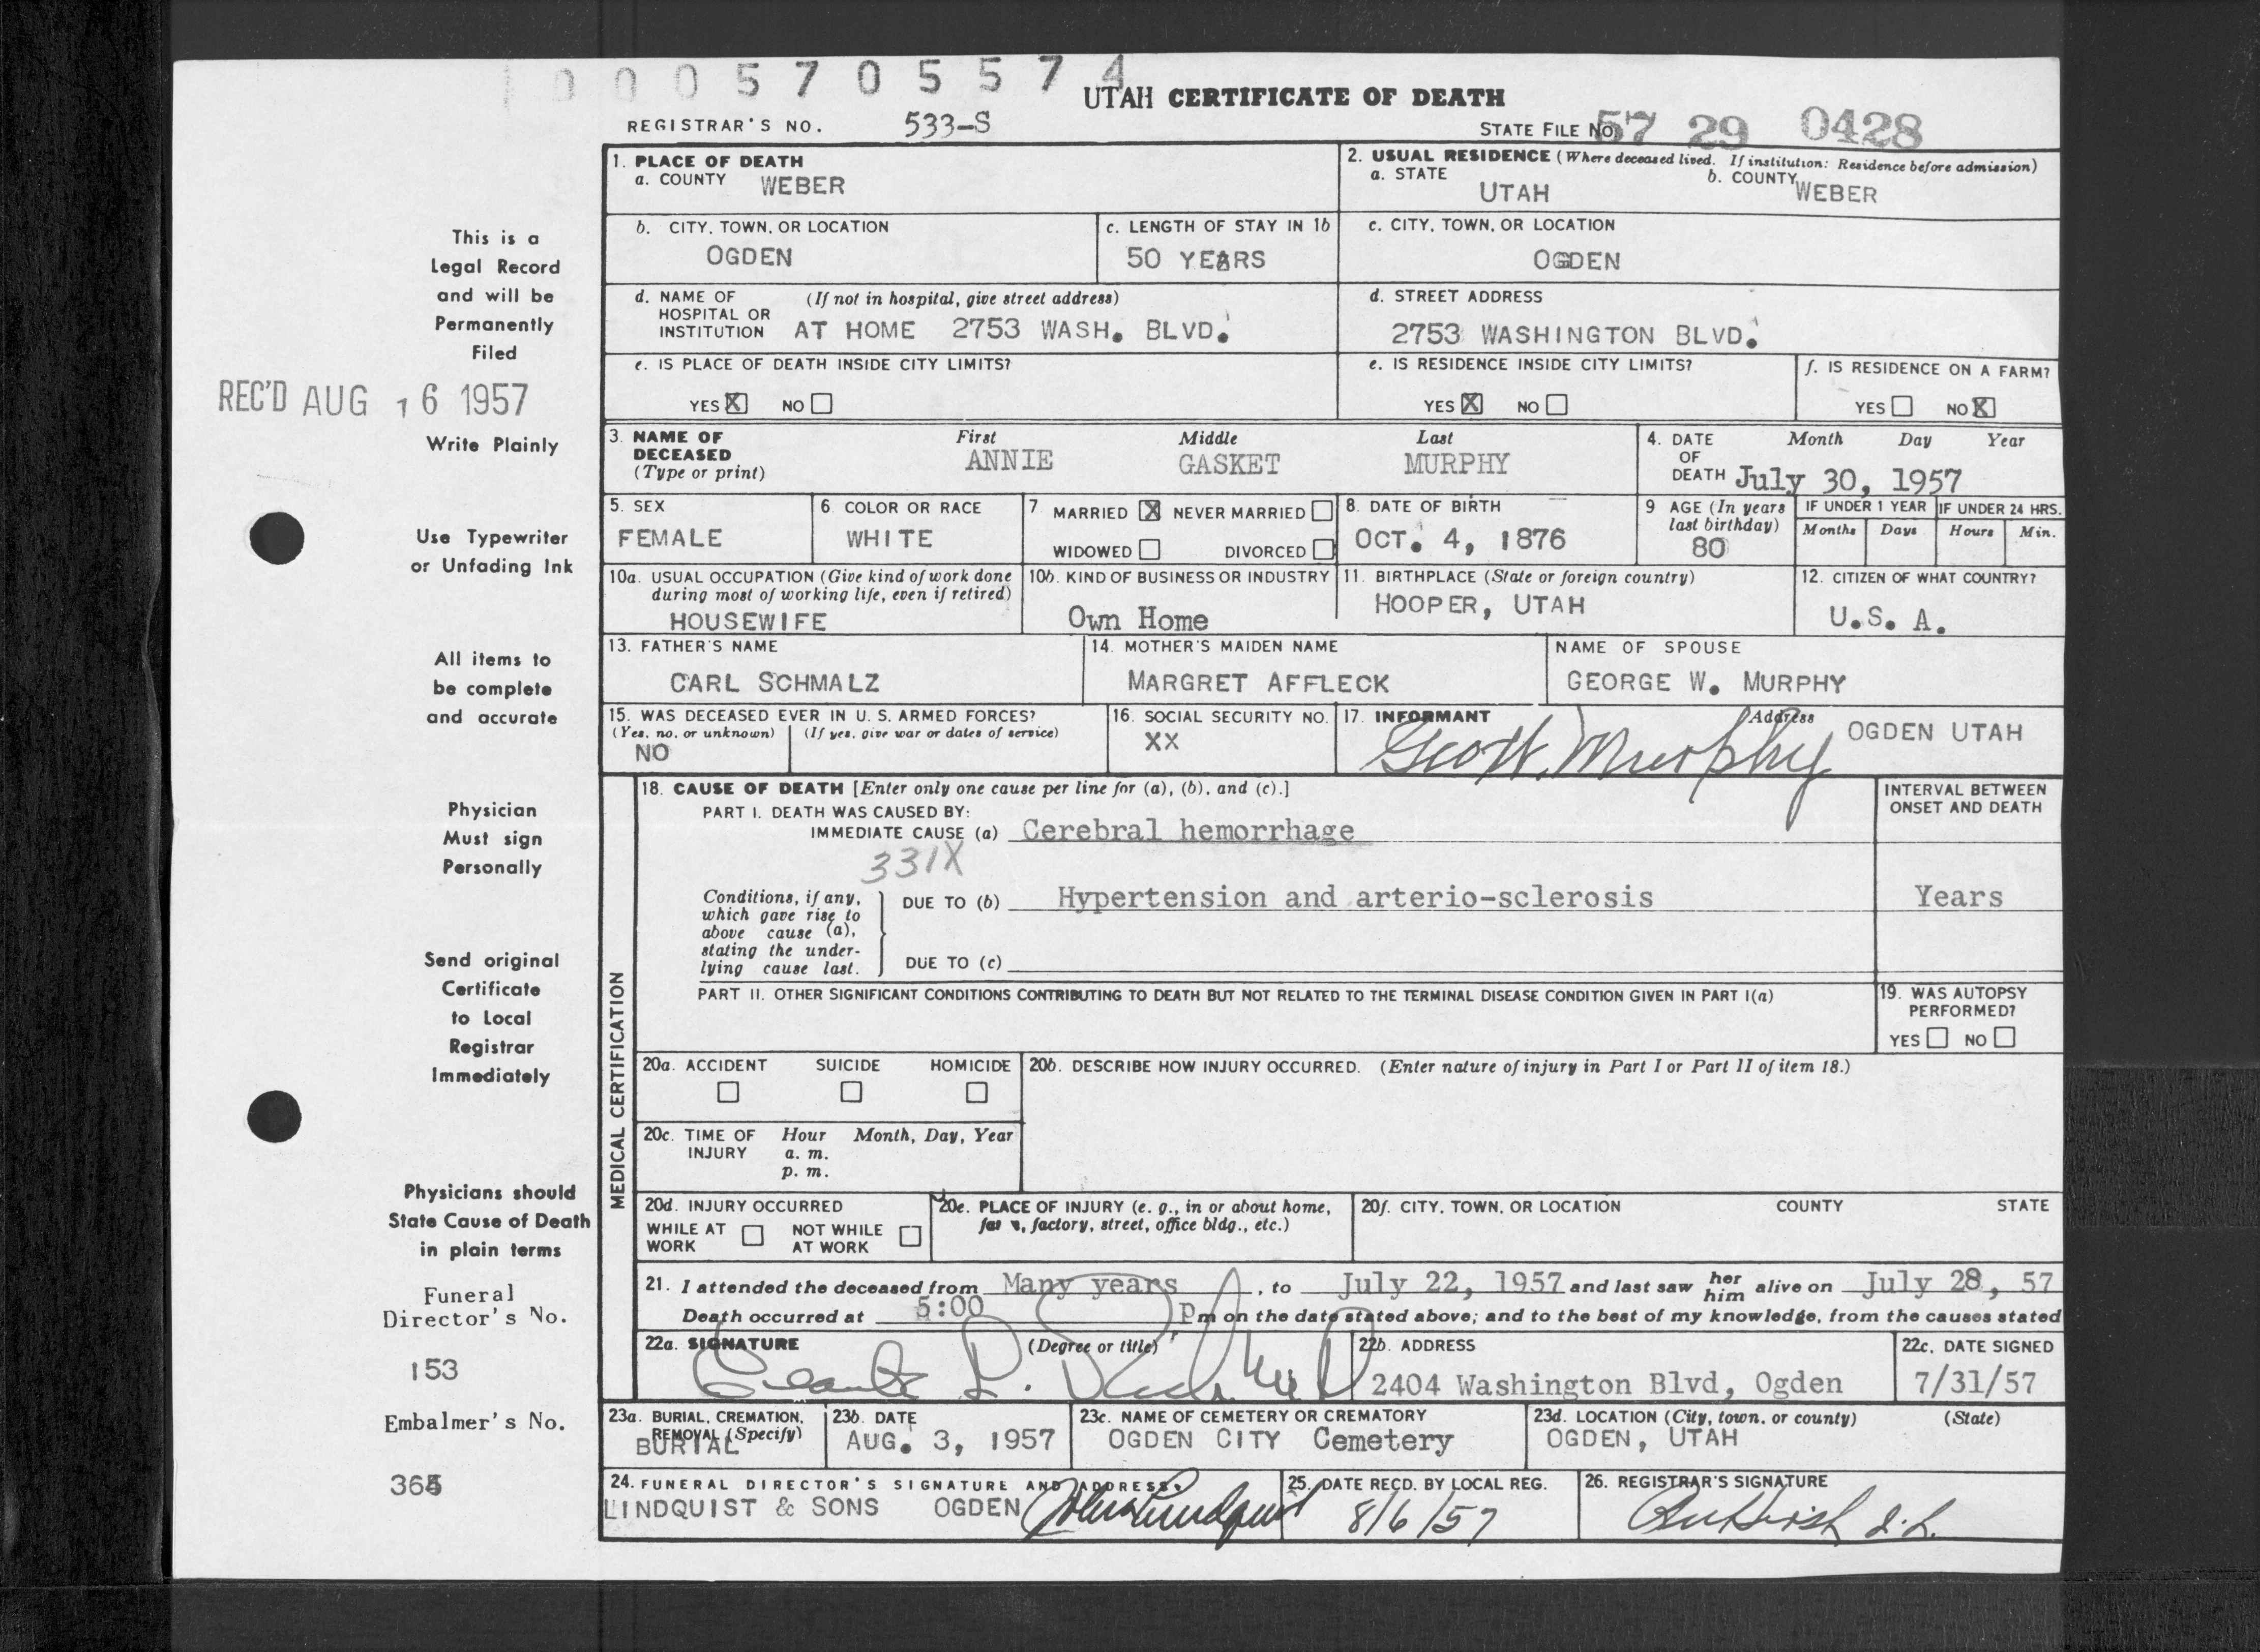 0005705574
UTAH CERTIFICATE OF DEATH
REGISTRAR'S NO. 533-S
STATE FILE NO. 57 29 0428
1. PLACE OF DEATH
a. COUNTY WEBER
2. USUAL RESIDENCE (Where deceased lived. If institution: Residence before admission)
a. STATE UTAH b. COUNTY WEBER
b. CITY, TOWN, OR LOCATION OGDEN
c. LENGTH OF STAY IN 1b 50 YEARS
c. CITY, TOWN, OR LOCATION OGDEN
d. NAME OF HOSPITAL OR INSTITUTION (If not in hospital, give street address) AT HOME 2753 WASH. BLVD.
d. STREET ADDRESS 2753 WASHINGTON BLVD.
e. IS PLACE OF DEATH INSIDE CITY LIMITS?
YES X NO
e. IS RESIDENCE INSIDE CITY LIMITS?
YES X NO
f. IS RESIDENCE ON A FARM?
YES NO X
3. NAME OF DECEASED (Type or print)
First Middle Last
ANNIE GASKET MURPHY
4. DATE OF DEATH Month Day Year
July 30, 1957
5. SEX FEMALE
6. COLOR OR RACE WHITE
7 MARRIED X NEVER MARRIED
WIDOWED DIVORCED
8. DATE OF BIRTH OCT. 4, 1876
9 AGE (In years last birthday) 80
IF UNDER 1 YEAR Months Days
IF UNDER 24 HRS. Hours Min.
10a. USUAL OCCUPATION (Give kind of work done during most of working life, even if retired) HOUSEWIFE
10b. KIND OF BUSINESS OR INDUSTRY Own Home
11. BIRTHPLACE (State or foreign country) HOOPER, UTAH
12. CITIZEN OF WHAT COUNTRY? U.S. A.
13. FATHER'S NAME CARL SCHMALZ
14. MOTHER'S MAIDEN NAME MARGRET AFFLECK
NAME OF SPOUSE GEORGE W. MURPHY
15. WAS DECEASED EVER IN U. S. ARMED FORCES?
(Yes, no, or unknown) (If yes, give war or dates of service)
NO
16. SOCIAL SECURITY NO. XX
17. INFORMANT Address
Geo W. Murphy OGDEN UTAH
MEDICAL CERTIFICATION
18. CAUSE OF DEATH [Enter only one cause per line for (a), (b), and (c).]
INTERVAL BETWEEN ONSET AND DEATH
PART I. DEATH WAS CAUSED BY:
IMMEDIATE CAUSE (a) Cerebral hemorrhage
331X
Conditions, if any, which gave rise to above cause (a), stating the underlying cause last.
DUE TO (b) Hypertension and arterio-sclerosis Years
DUE TO (c)
PART II. OTHER SIGNIFICANT CONDITIONS CONTRIBUTING TO DEATH BUT NOT RELATED TO THE TERMINAL DISEASE CONDITION GIVEN IN PART I(a)
19. WAS AUTOPSY PERFORMED?
YES NO
20a. ACCIDENT SUICIDE HOMICIDE
20b. DESCRIBE HOW INJURY OCCURRED. (Enter nature of injury in Part I or Part II of item 18.)
20c. TIME OF INJURY Hour Month, Day, Year
a. m.
p. m.
20d. INJURY OCCURRED
WHILE AT WORK NOT WHILE AT WORK
20e. PLACE OF INJURY (e. g., in or about home, farm, factory, street, office bldg., etc.)
20f. CITY, TOWN, OR LOCATION COUNTY STATE
21. I attended the deceased from Many years, to July 22, 1957 and last saw her him alive on July 28, 57
Death occurred at 5:00 Pm on the date stated above; and to the best of my knowledge, from the causes stated
22a. SIGNATURE (Degree or title)
22b. ADDRESS 2404 Washington Blvd, Ogden
22c. DATE SIGNED 7/31/57
23a. BURIAL, CREMATION, REMOVAL (Specify) BURIAL
23b. DATE AUG. 3, 1957
23c. NAME OF CEMETERY OR CREMATORY OGDEN CITY Cemetery
23d. LOCATION (City, town, or county) (State) OGDEN, UTAH
24. FUNERAL DIRECTOR'S SIGNATURE AND ADDRESS
LINDQUIST & SONS OGDEN
25. DATE RECD. BY LOCAL REG. 8/6/57
26. REGISTRAR'S SIGNATURE
This is a
Legal Record
and will be
Permanently
Filed
REC'D AUG 16 1957
Write Plainly
Use Typewriter
or Unfading Ink
All items to
be complete
and accurate
Physician
Must sign
Personally
Send original
Certificate
to Local
Registrar
Immediately
Physicians should
State Cause of Death
in plain terms
Funeral
Director's No.
153
Embalmer's No.